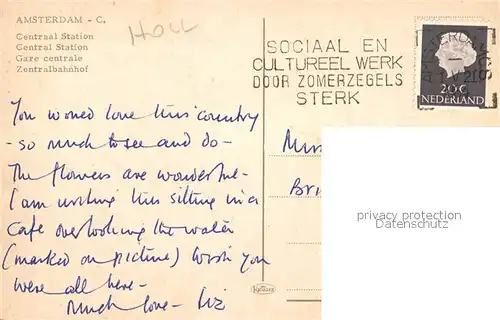 AMSTERDAM - C.
HOLL
Centraal Station
Central Station
Gare centrale
Zentralbahnhof
SOCIAAL EN
CULTUREEL WERK
DOOR ZOMERZEGELS
STERK
AMSTERDAM-CS
20c
NEDERLAND
You would love this country
- so much to see and do -
The flowers are wonderful -
I am writing this sitting in a
Cafe overlooking the water
(marked on picture) Wish you
were all here -
Much love - Liz
privacy protection
VARIAGENERALIS